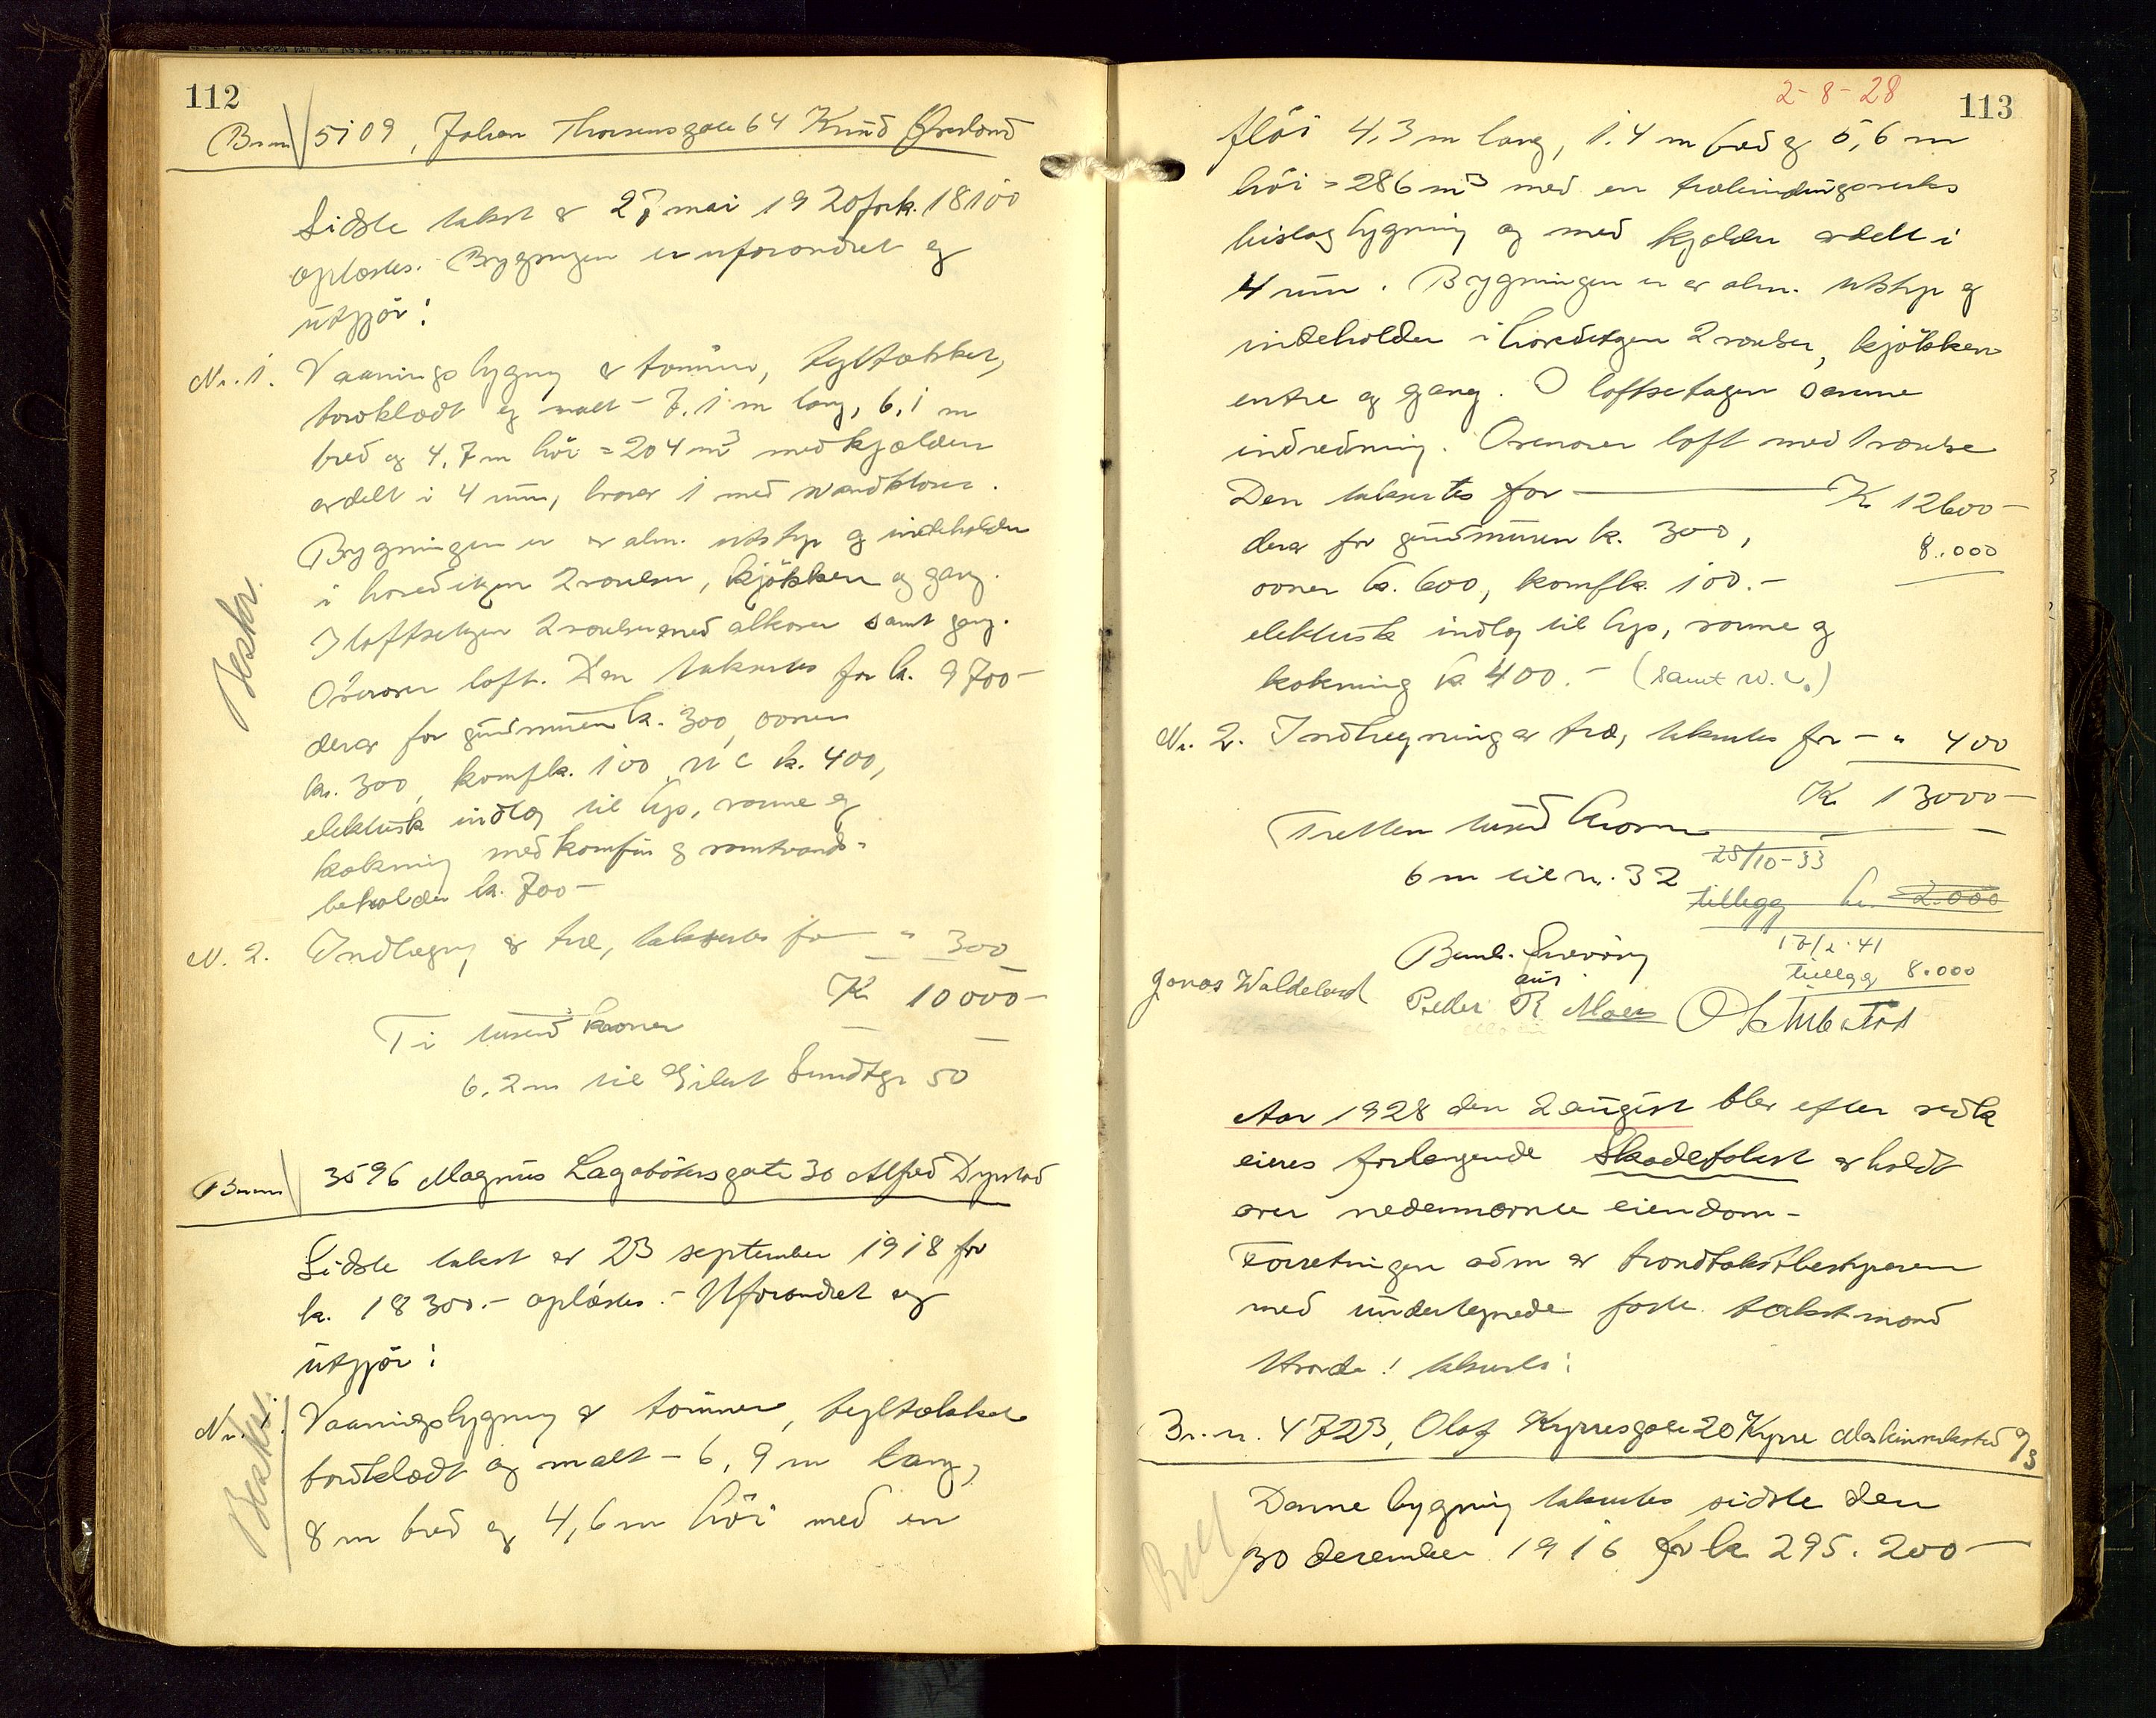 112
Br.nr 5109, Johan Thorsensgate 64 Knud Øverland
Sidste takst er 27 mai 1920 for k. 18100
oplæstes. Bygningen er uforandret og
utgjör:
Nr. 1. Vaaningsbygning av tömmer, tegltækket,
bordklædt og malt - 7.1 m lang, 6.1 m
bred og 4,7 m höi = 204 m3 med kjælder
avdelt i 4 rum, hvorav 1 med vandkloset.
Bygningen er av alm. utstyr og indeholder
i hovedetagen 2 værelser, kjökken og gang.
I loftsetagen 2 værelser med alkover samt gang.
Ovenover loft. Den takseres for k. 9700-
derav for grundmuren k. 300, ovner
kr. 300, komf k. 100, W C k. 400,
elektrisk indlæg til lys, varme og
kokning med komfur og varmtvands-
beholder k. 700-
Beskr.
N. 2. Indhegning av træ, takseres for - " 300
K 10000-
Ti tusend kroner
6.2 m til Eilert Sundtgt 50
Br.nr 3596 Magnus Lagabötersgate 30 Alfred Dyrstad
Sidste takst er 23 september 1918 for
k. 18300.- oplæstes.- Uforandret og
utgjör:
Nr. 1. Vaaningsbygning av tömmer, tegltækket
bordklædt og malt - 6,9 m lang,
8 m bred og 4,6 m höi med en
Beskr.
2-8-28
113
flöi 4,3 m lang, 1.4 m bred og 5,6 m
höi = 286 m3 med en trebindingsverks
bislagbygning og med kjælder avdelt i
4 rum. Bygningen er av alm. utstyr og
indeholder i hovedetagen 2 værelser, kjökken
entre og gang. I loftsetagen samme
indredning. Ovenover loft med 1 værelse
Den takseres for K 12600-
derav for grundmuren k. 300, 8.000
ovner k. 600, komf k. 100.-
elektrisk indlæg til lys, varme og
kokning k 400.- (samt W.C.)
Nr. 2. Indhegning av træ, takseres for - " 400
K 13000-
Tretten tusend kroner
25/10-33
6 m til nr. 32
tillegg kr. 2.000
17/2.41
tillegg 8.000
Jonas Waldeland
Peder R Moen
Aar 1928 den 2 august blev efter vedk
eieres forlangende Skadetakst avholdt
over nedennævnte eiendom-
Forretningen adm av brandtakstbestyreren
med undertegnede faste takstmænd
Utvordr! takserts:
Br. nr. 4723, Olaf Kyrresgate 20 Kyrre Maskinverksted A/S
Denne bygning takseres sidste den
30 desember 1916 for k 295.200-